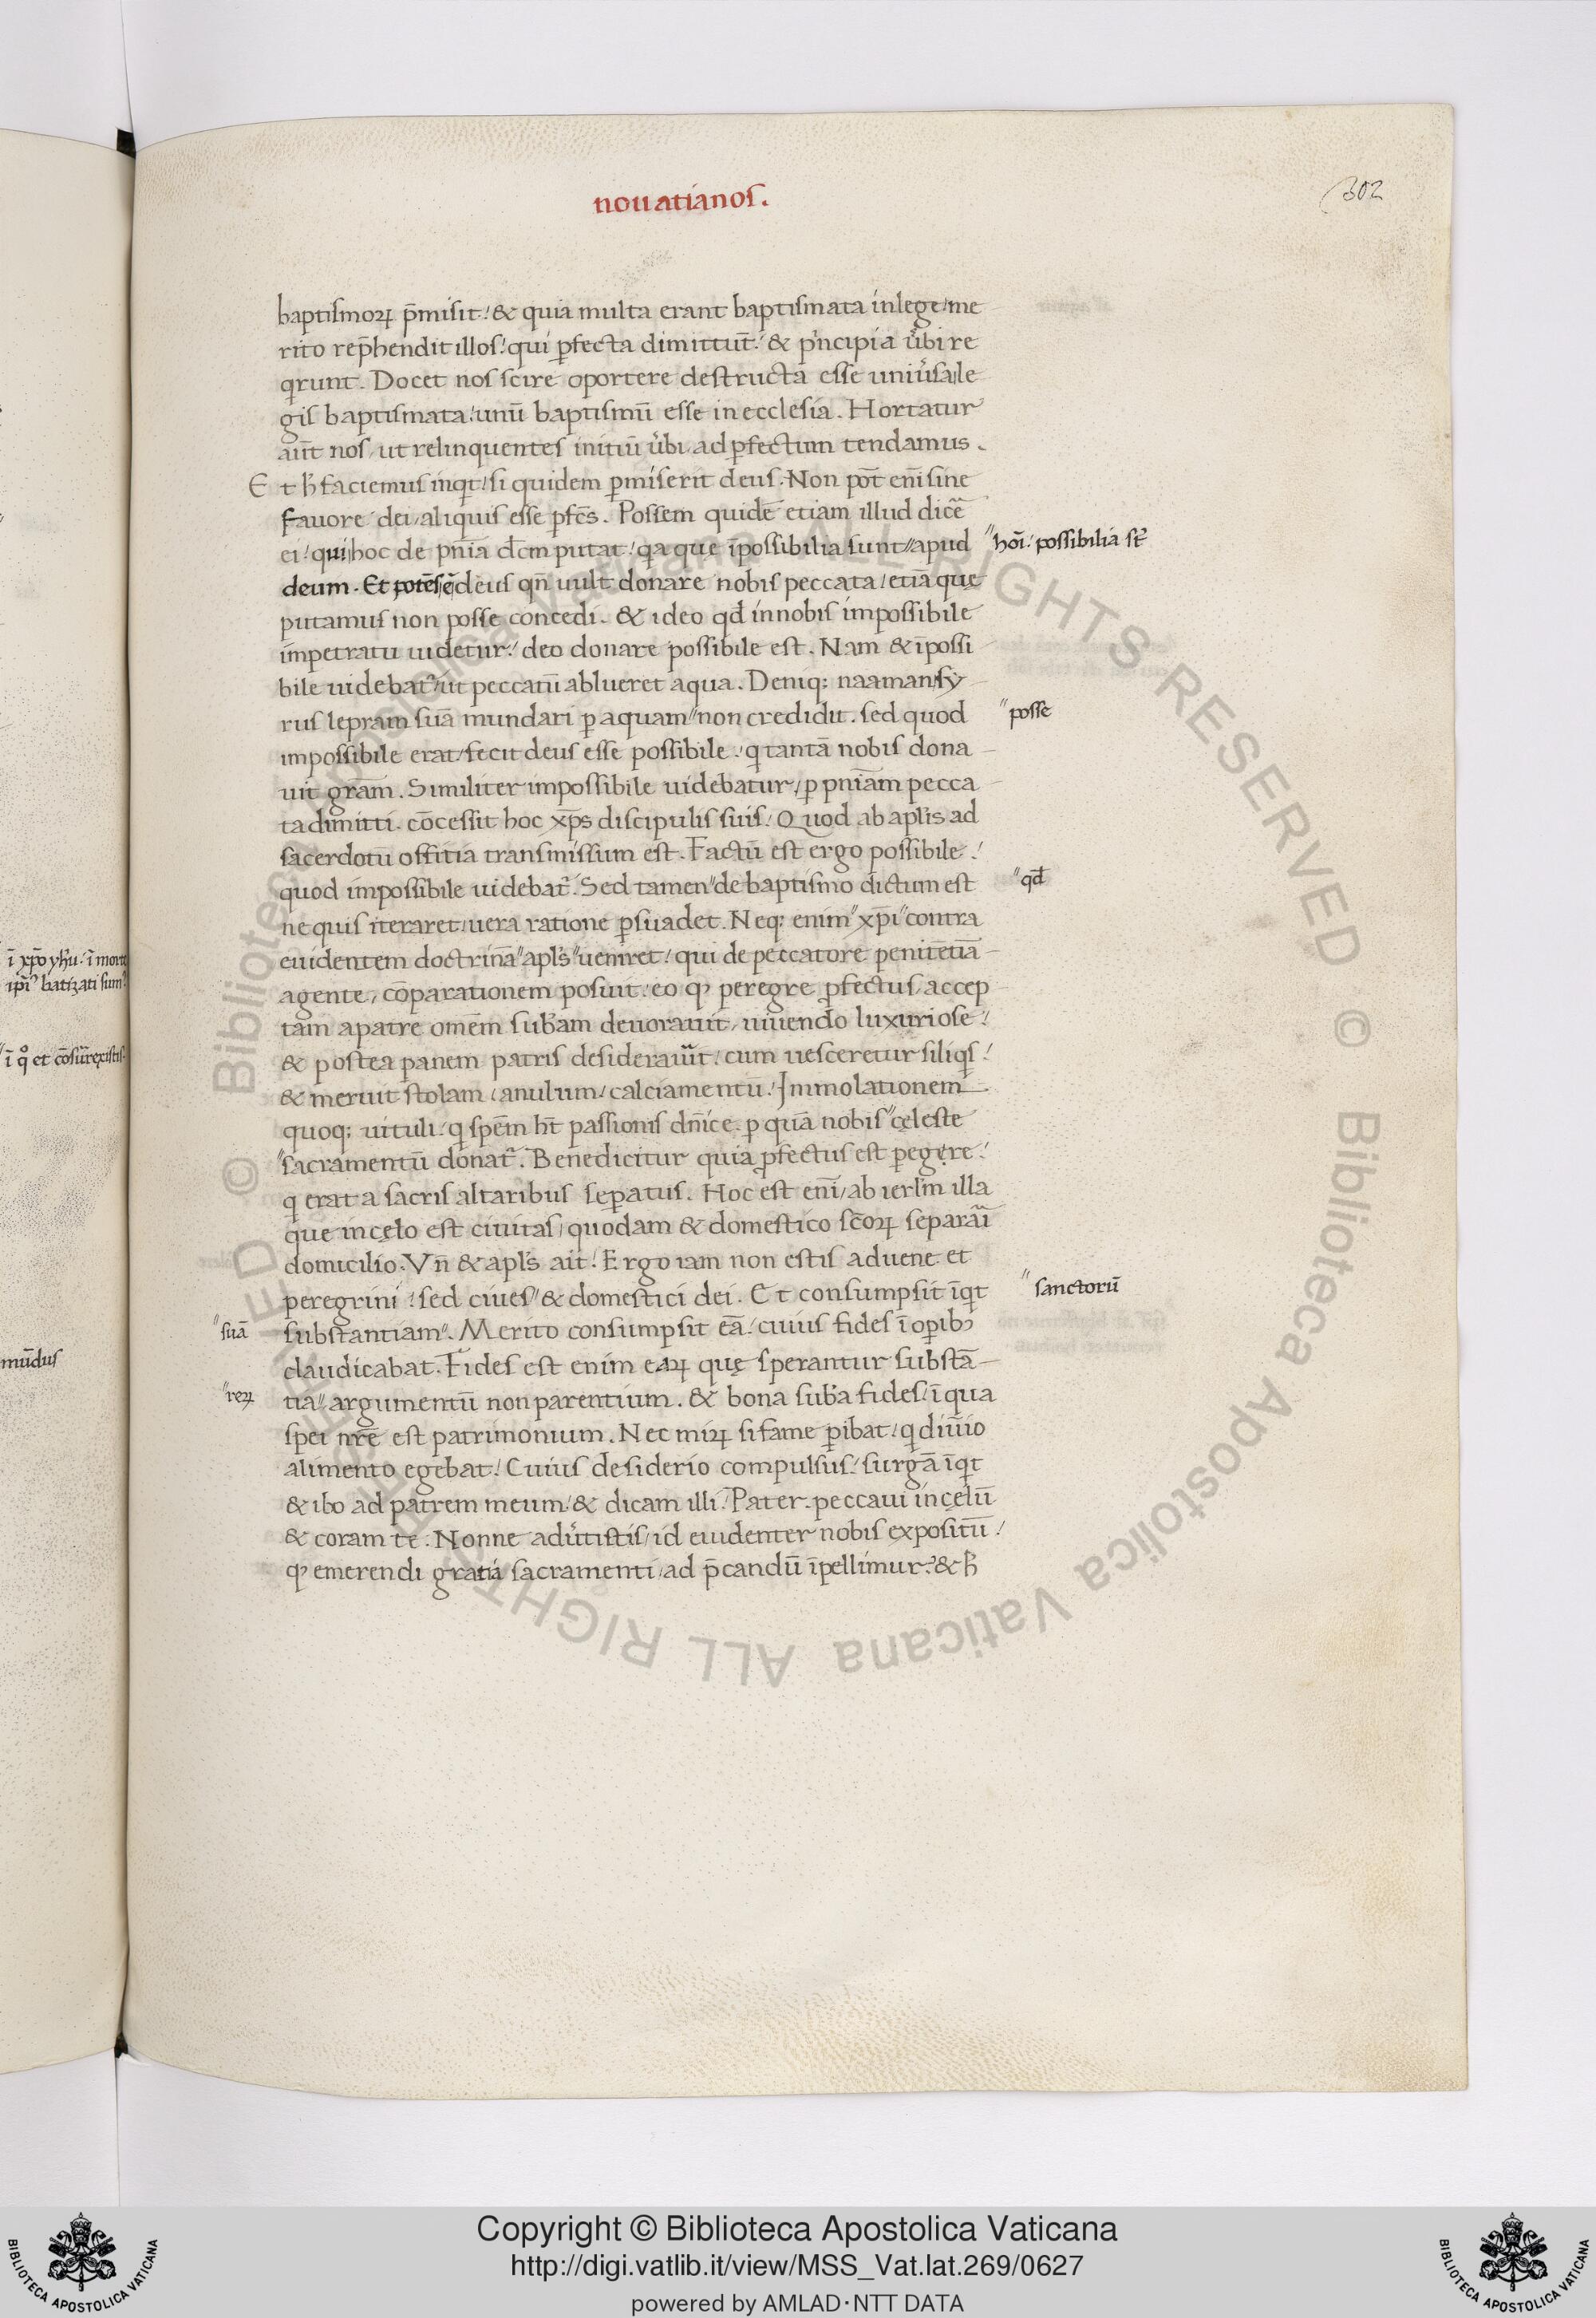 nouatianos.
302
baptismoꝝ p̄misit. & quia multa erant baptismata inlege me
rito rep̄hendit illos. qui ꝑfecta dimittūt. & pͥncipia ůbi re
qͥrunt. Docet nos scire oportere destructa esse uniůsa le
gis baptismata. unū baptismū esse in ecclesia. Hortatur
aut̄ nos, ut relinquentes initiū ůbi, ad ꝑfectum tendamus.
Et h̄ faciemus inqͥt, si quidem ꝑmiserit deus. Non pōt eni̅ sine
fauore dei, aliquis esse ꝑfcs̄. Possem quidē etiam illud dicē
ei. qui hoc de pn̄ia dc̄m putat. qͥa quę īpossibilia sunt″ apud
″hōi. possibilia st̄
deum. Et potēs ē deus qn̄ uult donare nobis peccata, etiā quę
putamus non posse concedi. & ideo qđ in nobis impossibile
impetratu uidetur. deo donare possibile est. Nam & īpossi
bile uidebat᷑ ut peccatū ablueret aqua. Deniq; naaman sy
rus lepram suā mundari ꝑ aquam″ non credidit. sed quod
″posse
impossibile erat, fecit deus esse possibile. qͥ tantā nobis dona
uit grām. Similiter impossibile uidebatur, ꝑ pn̄iam pecca
ta dimitti. cōcessit hoc xp̄s discipulis suis. Quod ab apl̄is ad
sacerdotū offitia transmissum est. Factū est ergo possibile.
quod impossibile uidebat᷑. Sed tamen″ de baptismo dictum est
″qđ
ne quis iteraret. uera ratione ꝑsuadet. Neq; enim″ xp̄i″ contra
euidentem doctrinā″ apl̄s″ ueniret. qui de peccatore penitētiā
agente, cōparationem posuit. eo ꝙ peregre ꝓfectus, accep
tam a patre omēm sub̄am deuorauit, uiuendo luxuriose.
& postea panem patris desiderauit. cum uesceretur siliqͥs.
& meruit stolam, anulum, calciamentū. Immolationem
quoq; uituli. qͥ spēm ht̄ passionis dn̄ice. ꝑ quā nobis″ cęleste
″sacramentū donat᷑. Benedicitur quia ꝓfectus est ꝑegęre.
qͥ erat a sacris altaribus seꝑatus. Hoc est eni̅, ab ierl̄m illa
que in cęlo est ciuitas, quodam & domestico sc̄oꝝ separāi
domicilio. Vn̄ & apl̄s ait. Ergo iam non estis aduene et
peregrini. sed ciues″ & domestici dei. Et consumpsit īqͥt
″sanctorū
″suā
substantiam″. Merito consumpsit eā. cuius fides ī oꝑibꝫ
claudicabat. Fides est enim eaꝝ quę sperantur substā
″reꝝ
tia″ argumentū non parentium. & bona sub̄a fides. ī qua
spei nrē est patrimonium. Nec miꝝ si fame ꝑibat. qͥ diuīo
alimento egebat. Cuius desiderio compulsus. surgā īqͥt
& ibo ad patrem meum. & dicam illi. Pater. peccaui in cęlū
& coram te. Nonne adůtistis, id euidenter nobis expositū.
ꝙ emerendi gratiá sacramenti, ad p̄candū īpellimur. & h̄
ī xp̄o yh̄u. ī morte
ipi᷒ batizati sum᷒
ī qͦ et cōsurrexistis.
mūdus
Copyright © Biblioteca Apostolica Vaticana
http://digi.vatlib.it/view/MSS_Vat.lat.269/0627
powered by AMLAD·NTT DATA
BIBLIOTECA APOSTOLICA VATICANA
BIBLIOTECA APOSTOLICA VATICANA
© Biblioteca Apostolica Vaticana ALL RIGHTS RESERVED © Biblioteca Apostolica Vaticana ALL RIGHTS RESERVED